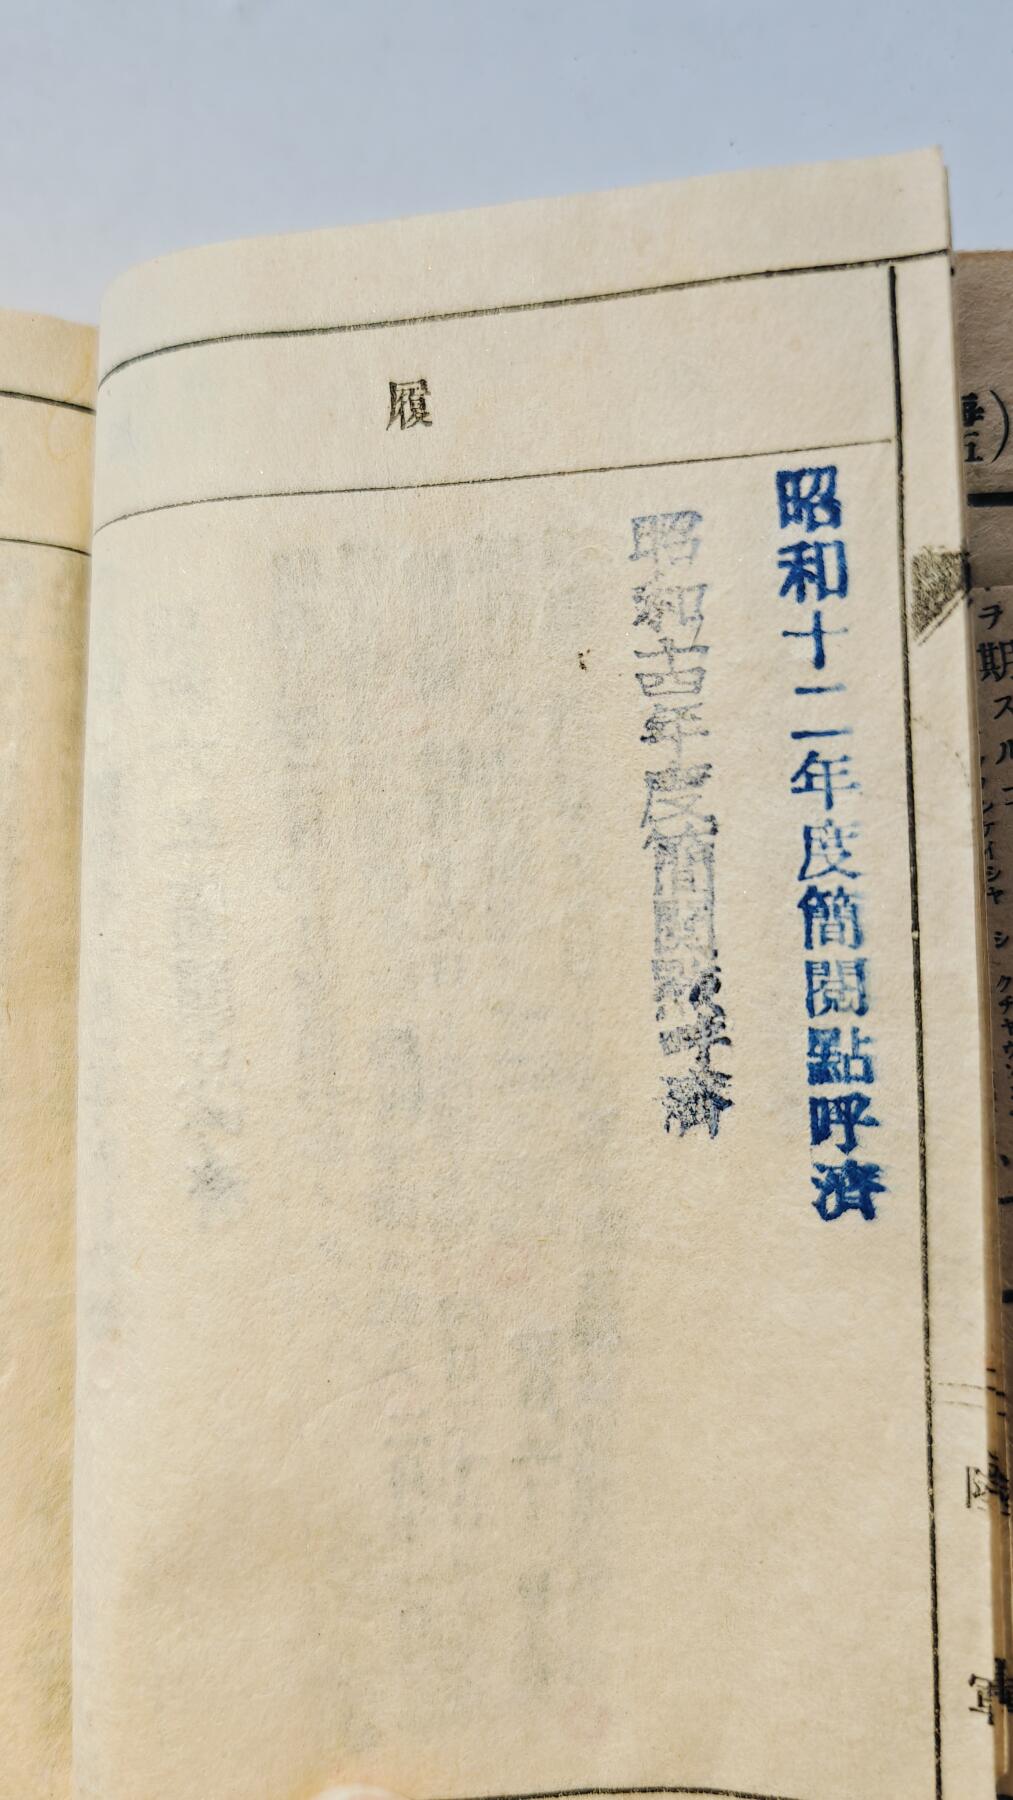 履
昭和十二年度簡閲點呼濟
昭和十四年度簡閲點呼濟
期スルコ
陸軍